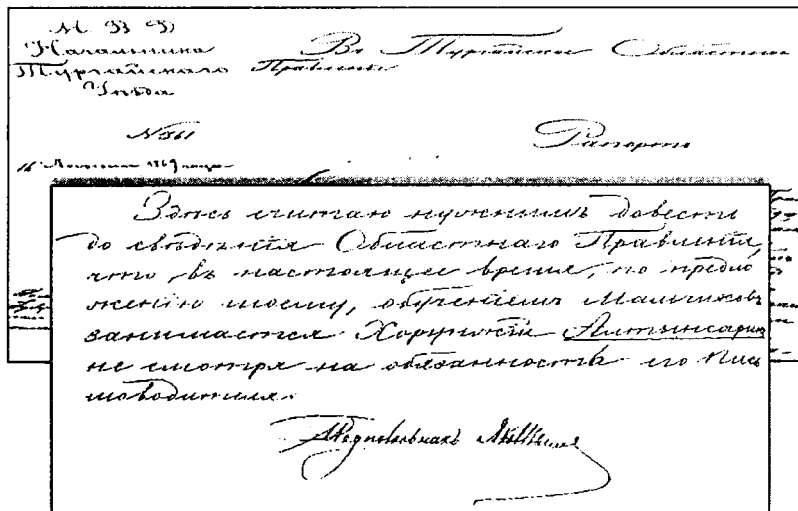 М В Д
Начальника
Тургайскаго
Уѣзда
Въ Тургайское Областное
Правленіе
№ 511
Рапортъ
1869 года
Здѣсь считаю нужнымъ довести
до свѣдѣнія Областнаго Правленія,
что, въ настоящее время, по предло
женію моему, обученіемъ мальчиковъ
занимается Хорунжій Алтынсаринъ
не смотря на обязанность его Пись
моводителя.
Подполковникъ